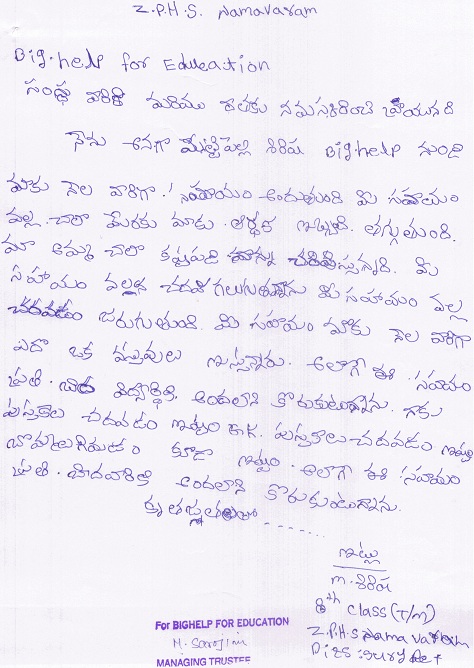 Z.P.H.S. Namavaram
Big.help for Education
సంస్థ వారికి మరిము శిలకు నమస్కరించి వ్రాయునది
నేను అనగా మొల్టిపెల్లి శిరిష Bighelp నుండి
మాకు నెల వారిగా సహాయం అందుతుంది మి సహాయం
వల్ల చాలా మేరకు మాకు ఆర్థిక ఇబ్బంది తగ్గుతుంది.
మా అమ్మ చాలా కష్టపడి నన్ను చదివిస్తున్నది. మి
సహాయం వల్లనే చదవగలుగుతున్నాను మి సహాయం వల్ల
చదవడం జరుగుతుంది. మి సహాయం మాకు నెల వారిగా
ఎదొ ఒక వస్తువులు ఇస్తున్నారు. అలాగే ఈ సహాయం
ప్రతి బీద విద్యార్థికి అందలాని కొరుకుంటున్నాను. నాకు
పుస్తకాల చదవడం ఇష్టం పుస్తకాలు చదవడం ఇష్టం
బొమ్మలుగియడం కూడా ఇష్టం. అలాగా ఈ సహాయం
ప్రతి బీదవారికి అందలాని కొరుకుంటున్నాను.
కృతజ్ఞతలతో ........
ఇట్లు
m. శిరిష
8th class (T/m)
Z.P.H.S Namavaram
Dis: Suryapet
For BIGHELP FOR EDUCATION
M. Sarojini
MANAGING TRUSTEE